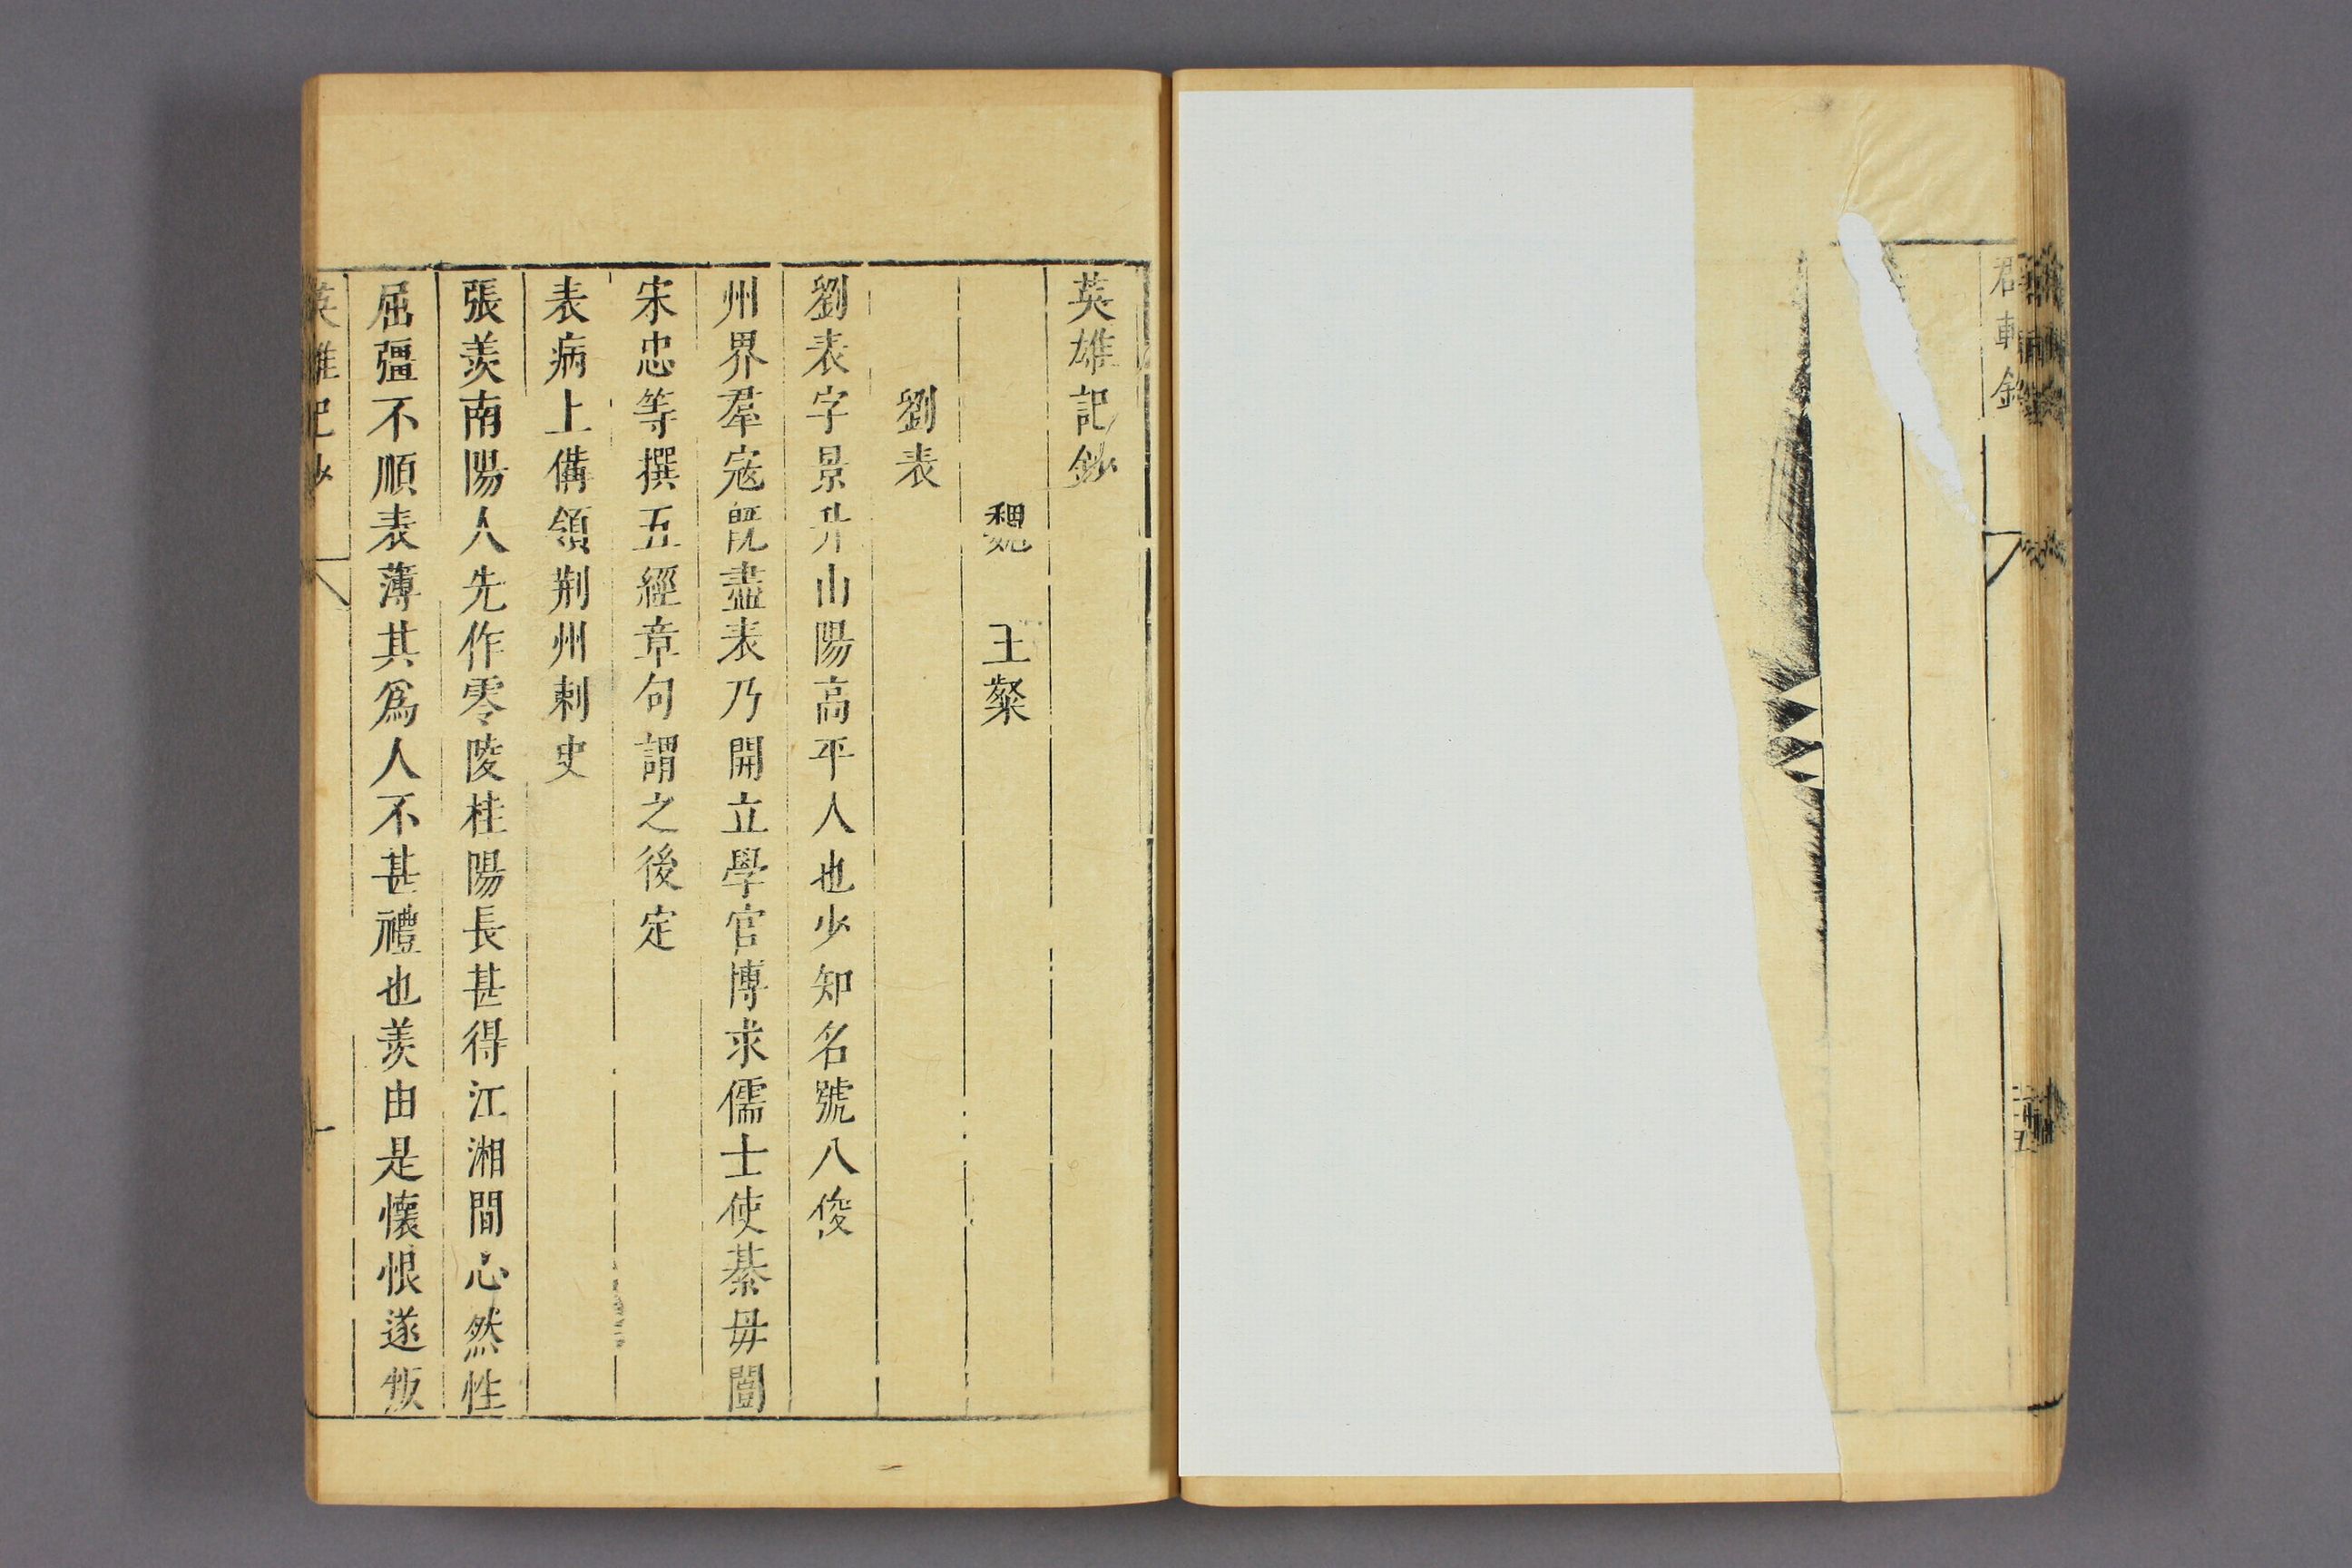 英雄記鈔
魏 王粲
劉表
劉表字景升山陽高平人也少知名號八俊
州界羣寇旣盡表乃開立學官博求儒士使綦毋闓
宋忠等撰五經章句謂之後定
表病上備領荆州刺史
張羨南陽人先作零陵桂陽長甚得江湘間心然性
屈彊不順表薄其爲人不甚禮也羨由是懷恨遂叛
英雄記鈔 一